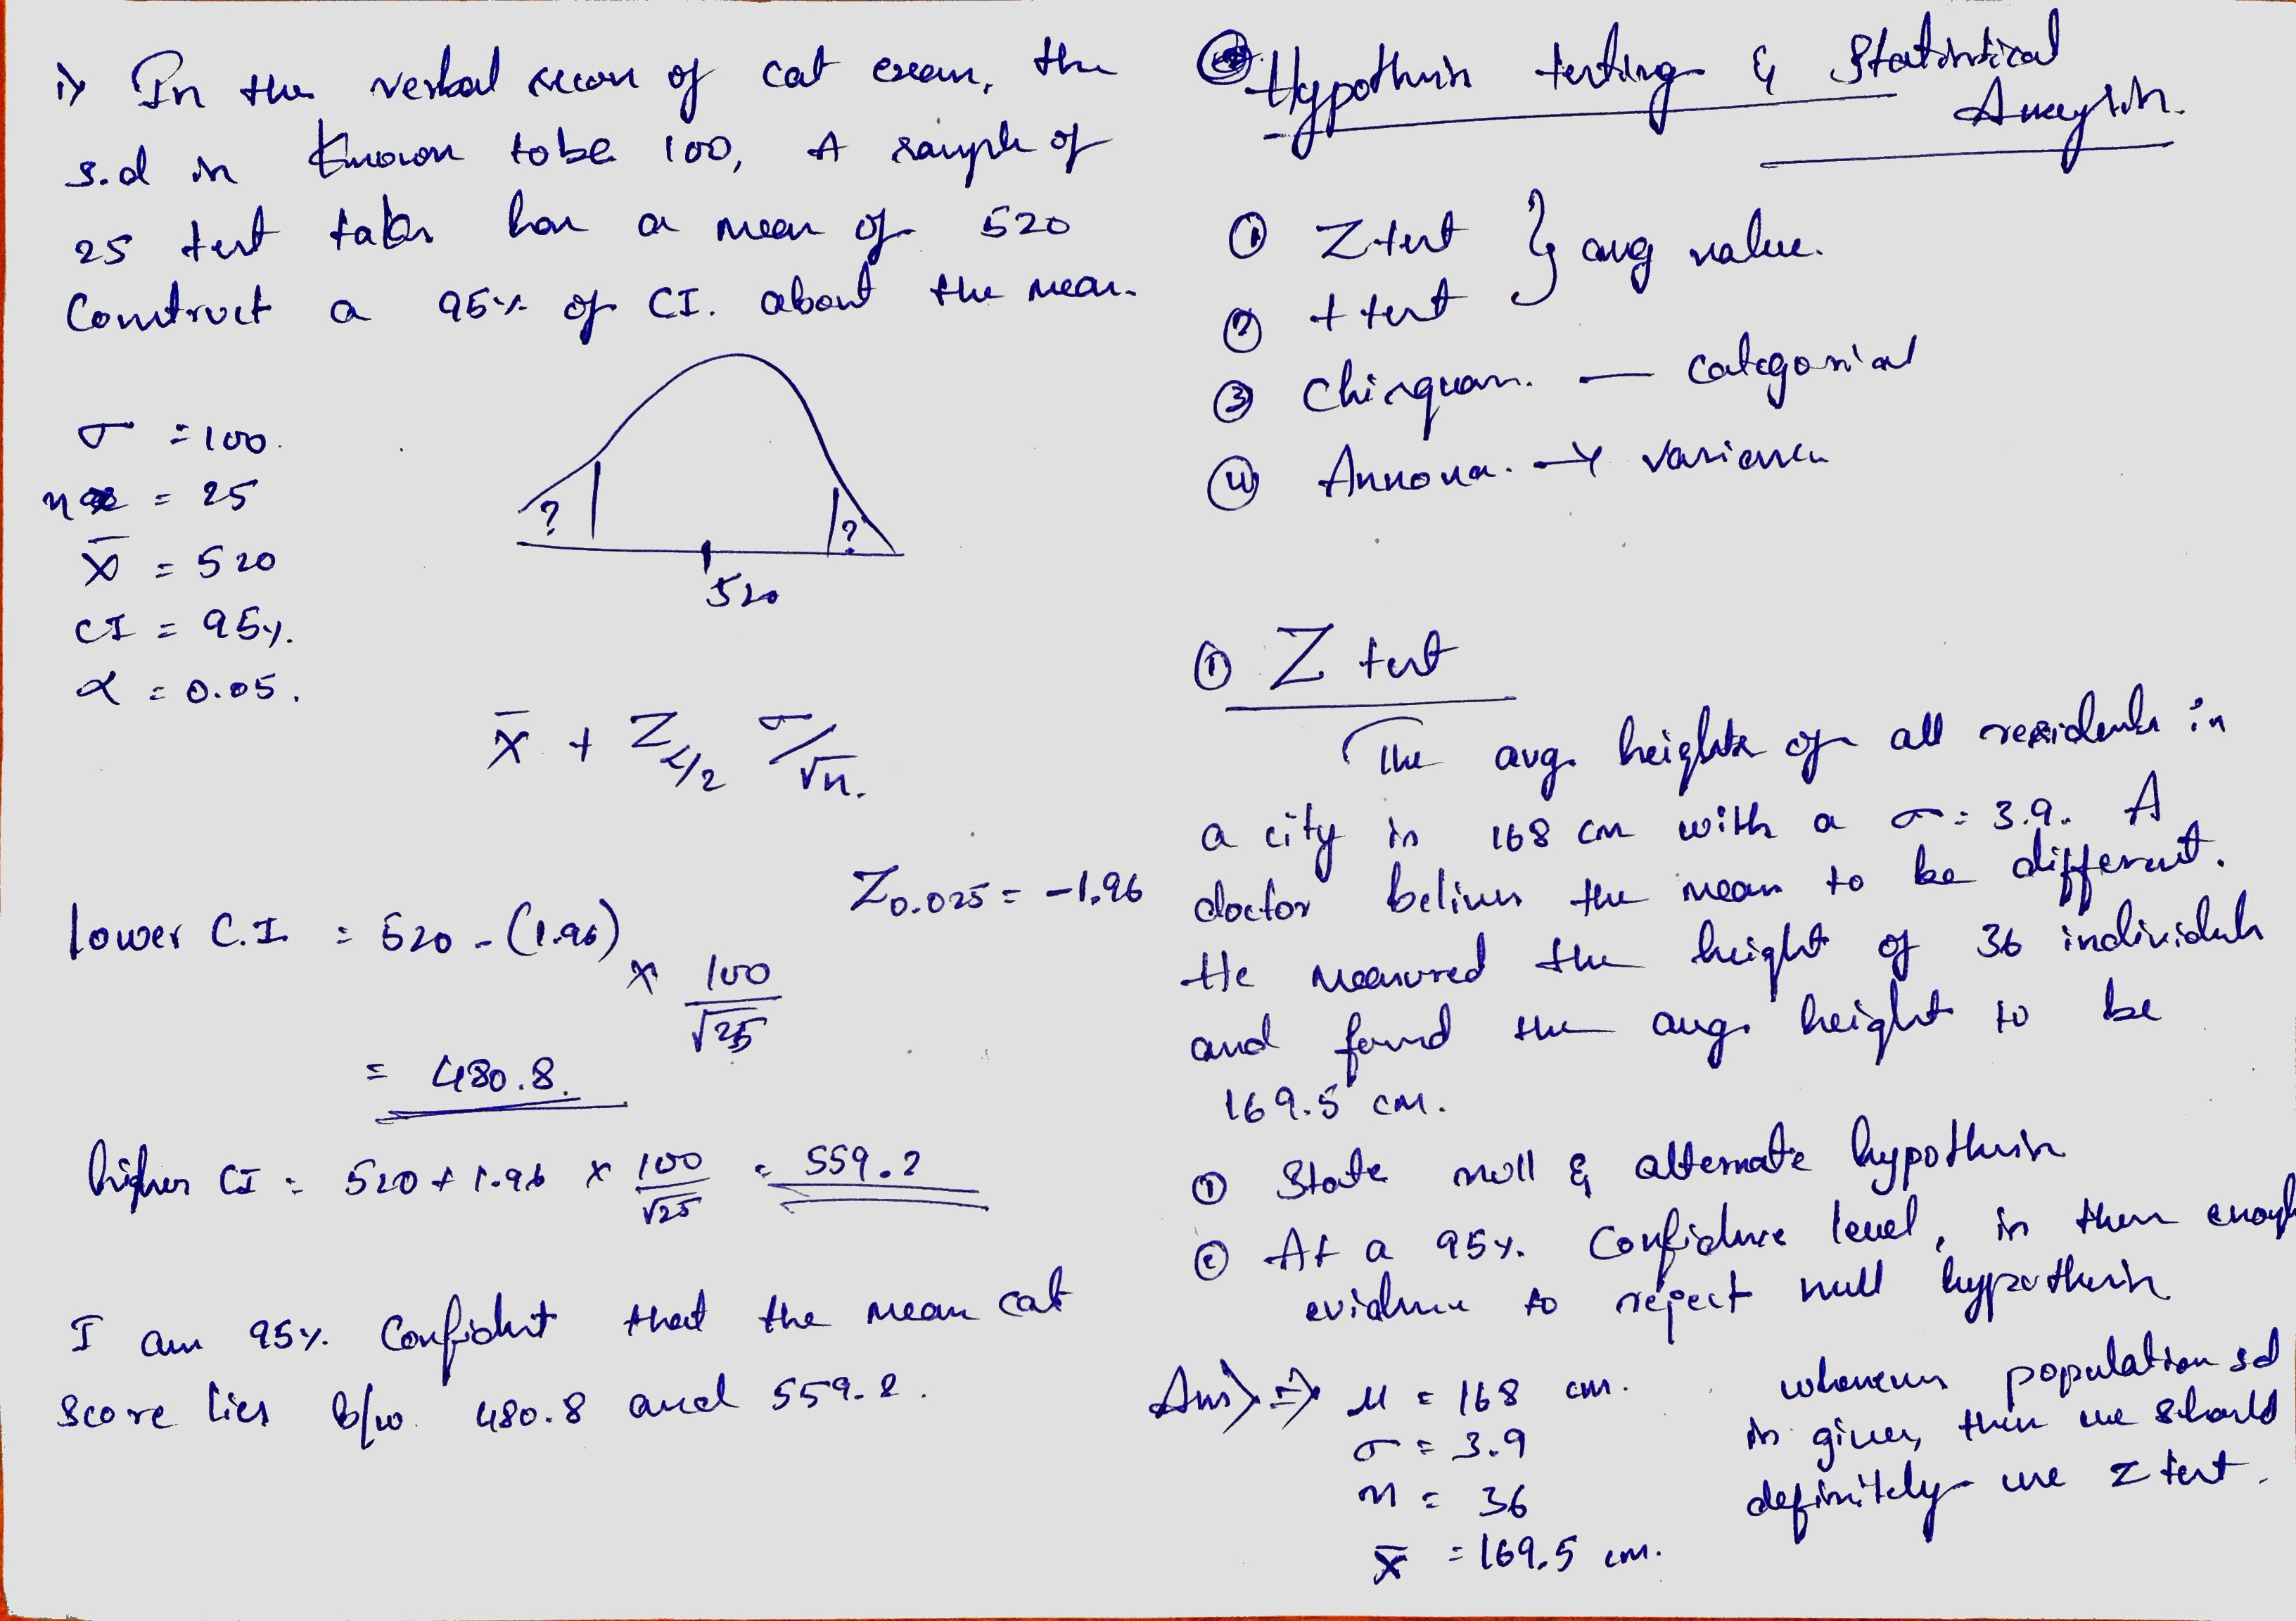 i) In the verbal secon of cat exam, the
s.d is known to be 100, A sample of
25 test takers has a mean of 520
Construct a 95% of CI. about the mean.
σ = 100.
n = 25
x̄ = 520
CI = 95%.
α = 0.05.
? ?
520
x̄ + Z α/2 σ/√n.
Z0.025 = -1.96
lower C.I. = 520 - (1.96) × 100/√25
= 480.8.
higher CI = 520 + 1.96 × 100/√25 = 559.2
I am 95% Confident that the mean cat
score lies b/w 480.8 and 559.2.
Hypothesis testing & Statistical
Analysis.
① Z test } avg value.
② t test
③ Chisquare. — categorical
④ Annova. → variance
① Z test
The avg. heights of all residents in
a city is 168 cm with a σ = 3.9. A
doctor belives the mean to be different.
He measured the height of 36 individuals
and found the avg. height to be
169.5 cm.
① State null & alternate hypothesis
② At a 95% Confidence level, is there enough
evidence to reject null hypothesis
Ans) ⇒ μ = 168 cm.
σ = 3.9
n = 36
x̄ = 169.5 cm.
whenever population sd
is given, then we should
definitely use z test.